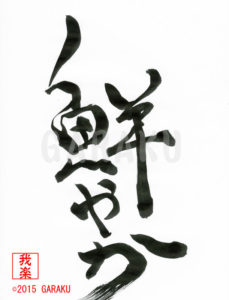 鮮やか
GARAKU
我楽
©2015 GARAKU